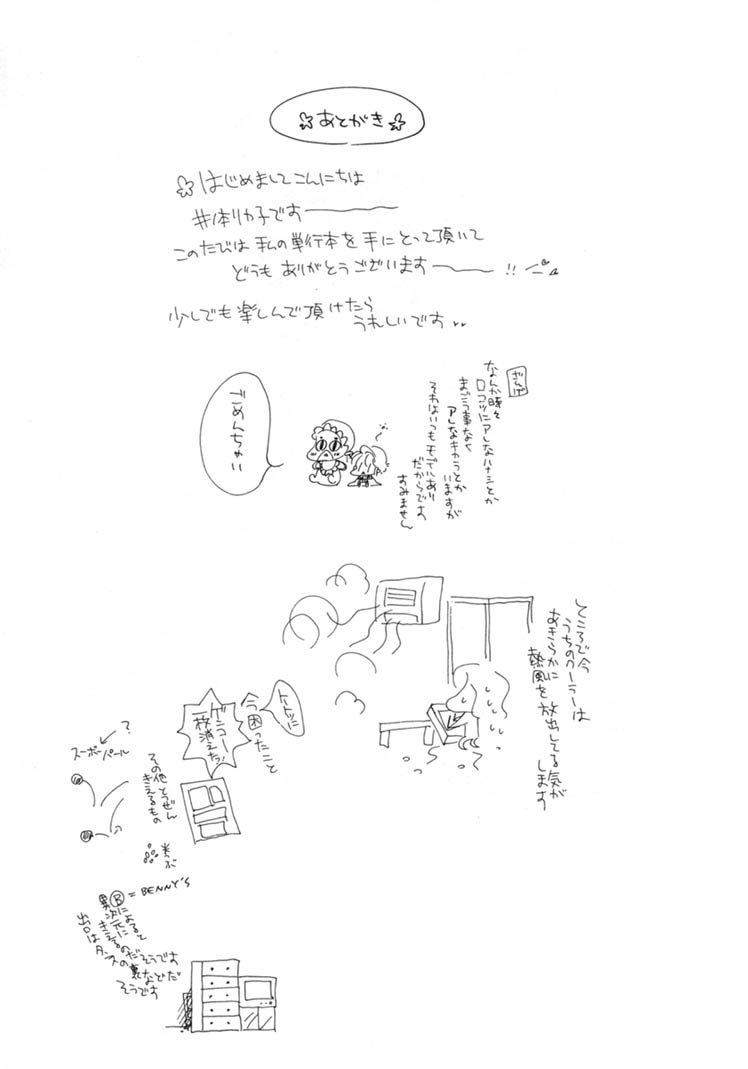 ☆あとがき☆
☆はじめましてこんにちは
井本リカ子です
このたびは私の単行本を手にとって頂いて
どうもありがとうございます〜〜!!
少しでも楽しんで頂けたら
うれしいです
ざんげ
なんか時々
ロコツにアレなハナシとか
まごう事なく
アレなキャラとか
いますが
それはいつもモデルあり
だからです
すみません
ごめんちゃい
ところで今
うちのクーラーは
あきらかに
熱風を放出してる気が
します
トートツに
今困ったこと
ゲンコー
一枚消えたッ
その他とつぜん
きえるもの
?
スーパーボール
米つぶ
Ⓑ=BENNY'S
異次元に
きえるのだそうです
出口は
タンスの裏などだ
そうです